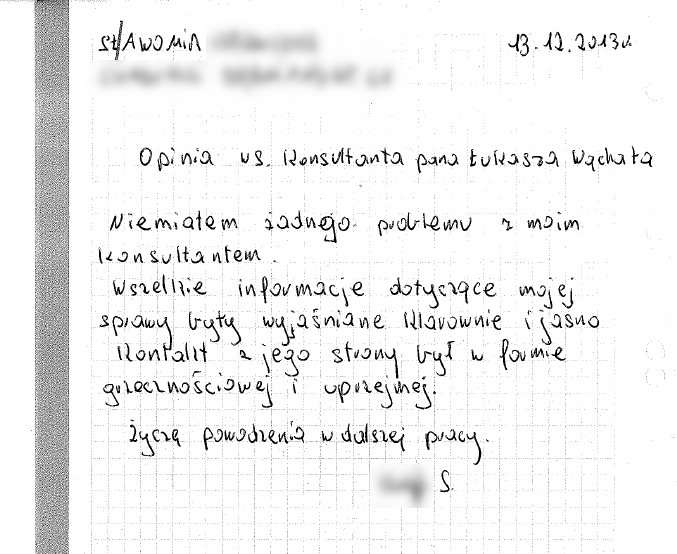 SŁAWOMIR
13.12.2013r.
Opinia ws. Konsultanta pana Łukasza Wąchała
Niemiałem żadnego problemu z moim
konsultantem.
Wszelkie informacje dotyczące mojej
sprawy były wyjaśniane klarownie i jasno
Kontakt z jego strony był w formie
grzecznościowej i uprzejmej.
Życzę powodzenia w dalszej pracy.
S.